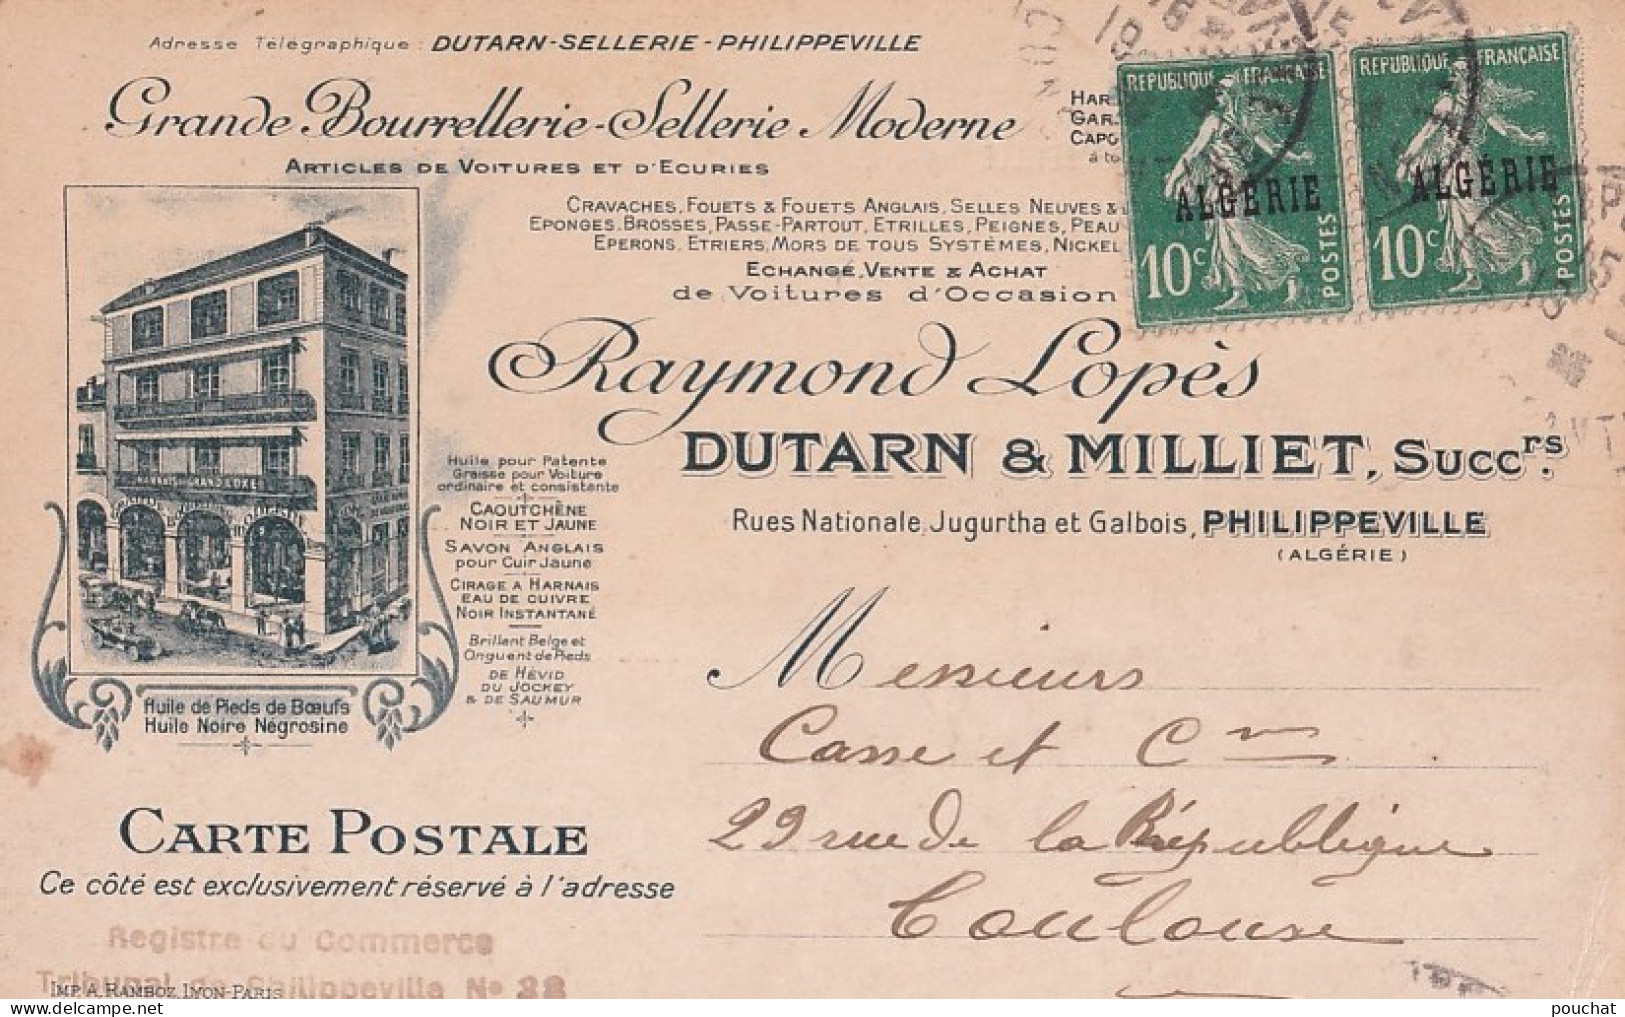 Adresse Télégraphique : DUTARN-SELLERIE-PHILIPPEVILLE
Grande Bourrellerie-Sellerie Moderne
ARTICLES DE VOITURES ET D'ECURIES
HAR
GAR
CAPO
à to
CRAVACHES, FOUETS & FOUETS ANGLAIS, SELLES NEUVES &
EPONGES, BROSSES, PASSE-PARTOUT, ETRILLES, PEIGNES, PEAU
EPERONS, ETRIERS, MORS DE TOUS SYSTÈMES, NICKEL
ECHANGE, VENTE & ACHAT
de Voitures d'Occasion
REPUBLIQUE FRANÇAISE
ALGÉRIE
10c
POSTES
REPUBLIQUE FRANÇAISE
ALGÉRIE
10c
POSTES
Raymond Lopès
DUTARN & MILLIET, Succrs.
Rues Nationale, Jugurtha et Galbois, PHILIPPEVILLE
(ALGÉRIE)
HARNAIS GRAND LUXE
Huile pour Patente
Graisse pour Voiture
ordinaire et consistante
CAOUTCHÈNE
NOIR ET JAUNE
SAVON ANGLAIS
pour Cuir Jaune
CIRAGE A HARNAIS
EAU DE CUIVRE
NOIR INSTANTANÉ
Brillant Belge et
Onguent de Pieds
DE HÉVID
DU JOCKEY
& DE SAUMUR
Huile de Pieds de Bœufs
Huile Noire Négrosine
Messieurs
Casse et Cie
29 rue de la République
Toulouse
CARTE POSTALE
Ce côté est exclusivement réservé à l'adresse
Registre du Commerce
Tribunal de Philippeville No 38
IMP. A. RAMBOZ, LYON-PARIS
pouchat